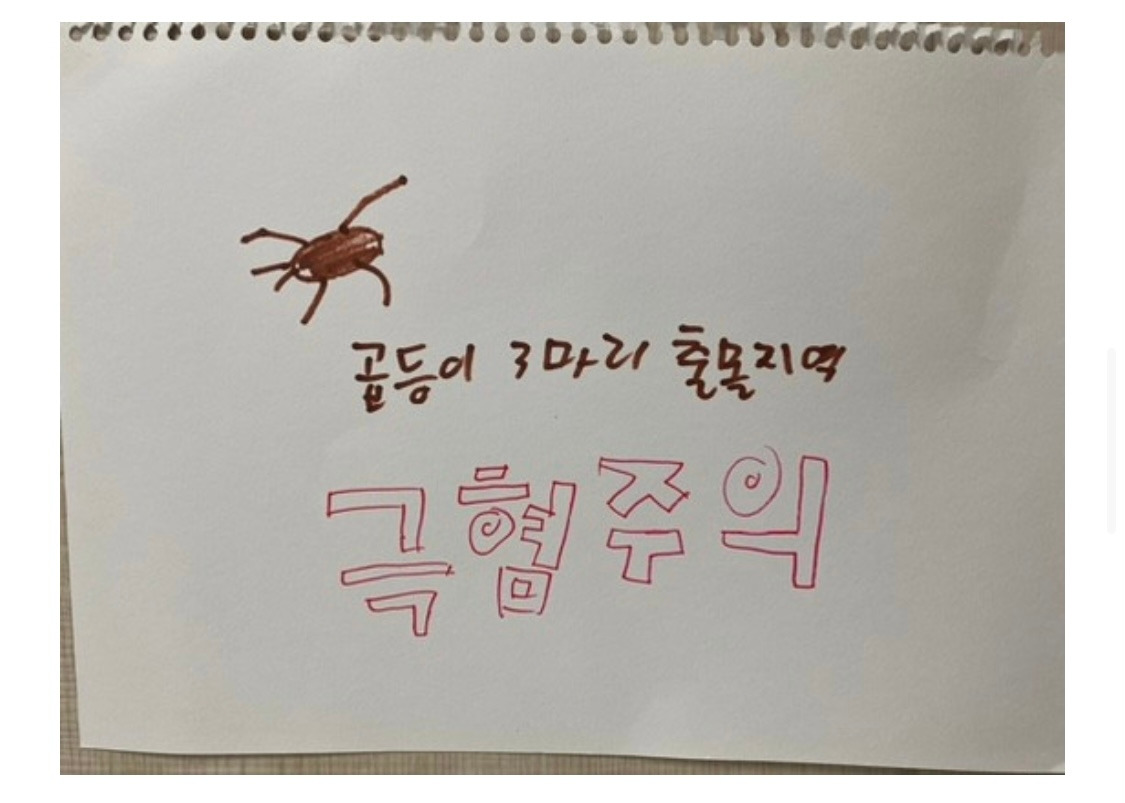 곱등이 3마리 출몰지역
극혐주의